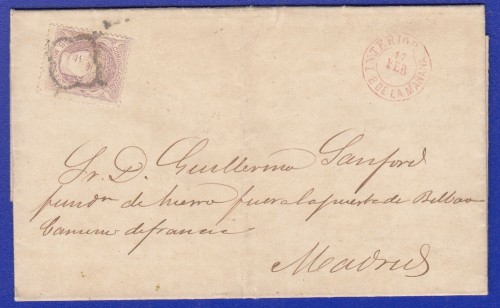 INTERIOR
17
FEB
8 DE LA MAÑANA
Sr. D. Guillermo Sanford
fundon de hierro fuera la puerta de Bilbao
Camino de francia
Madrid